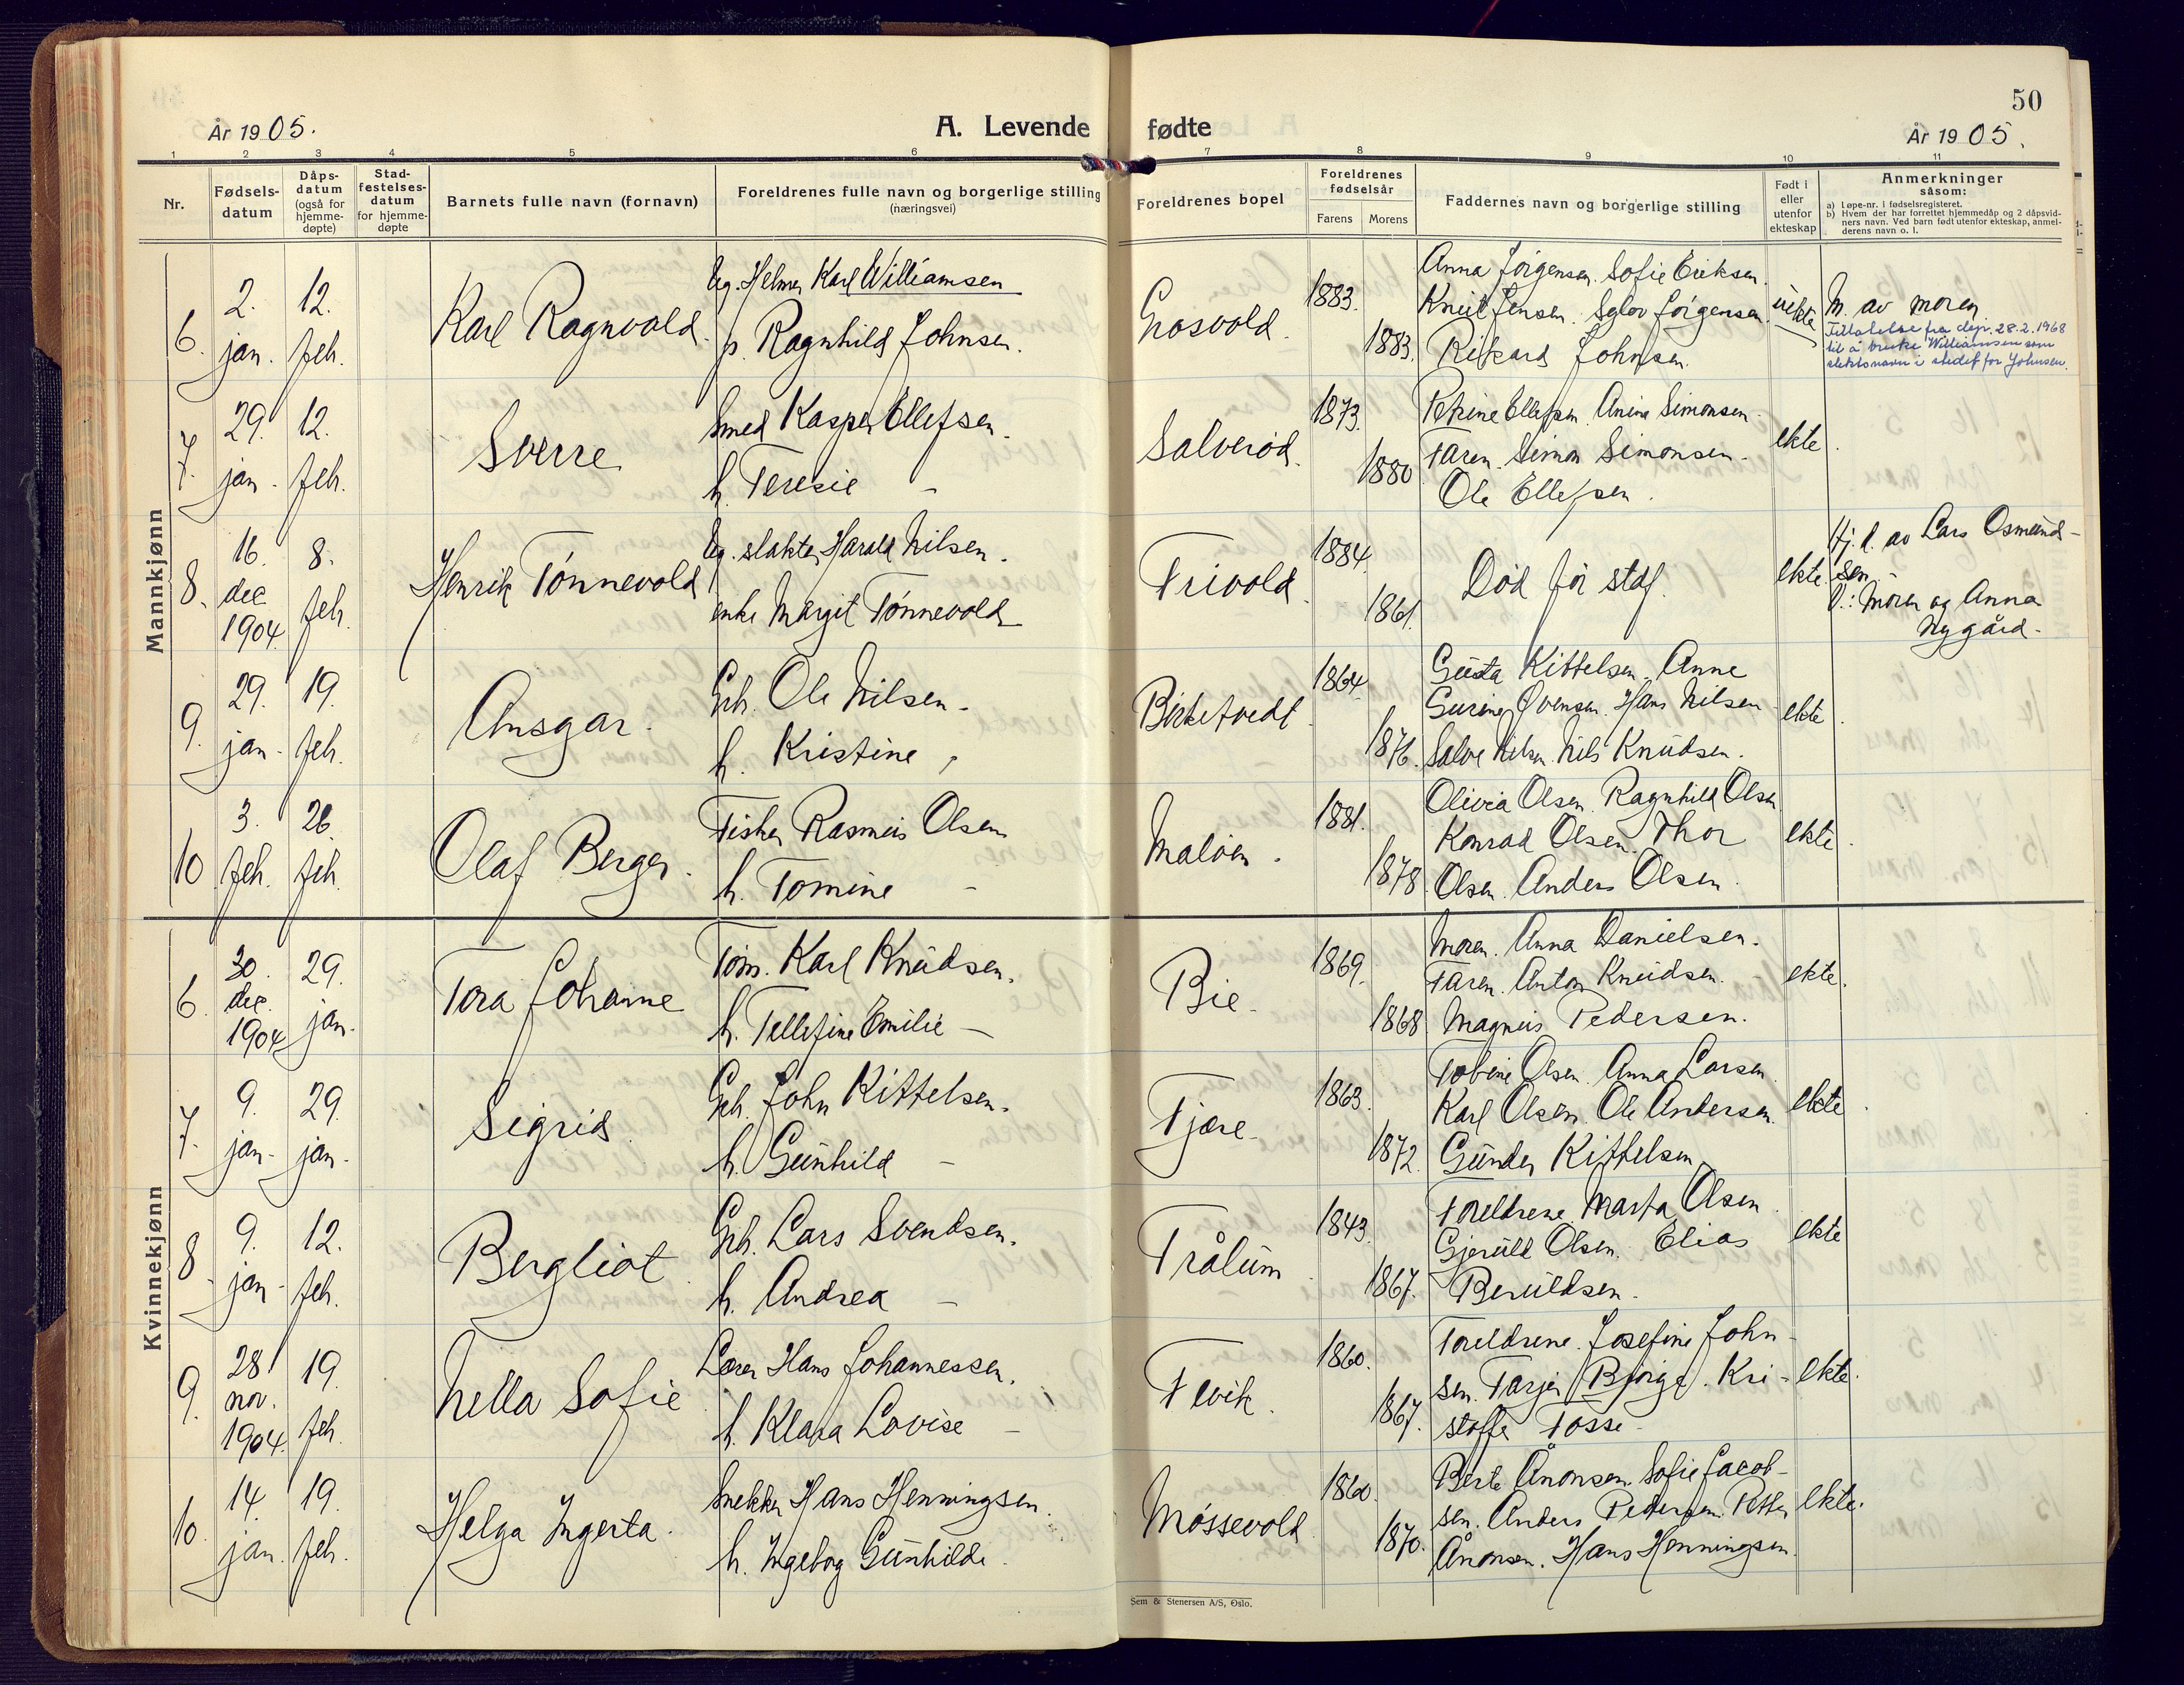 50
År 1905.
A. Levende fødte
År 1905.
1 2 3 4 5 6 7 8 9 10 11
Nr.
Fødsels-
datum
Dåps-
datum
(også for
hjemme-
døpte)
Stad-
festelses-
datum
for hjemme-
døpte
Barnets fulle navn (fornavn)
Foreldrenes fulle navn og borgerlige stilling
(næringsvei)
Foreldrenes bopel
Foreldrenes
fødselsår
Farens Morens
Faddernes navn og borgerlige stilling
Født i
eller
utenfor
ekteskap
Anmerkninger
såsom:
a) Løpe-nr. i fødselsregisteret.
b) Hvem der har forrettet hjemmedåp og 2 dåpsvid-
ners navn. Ved barn født utenfor ekteskap, anmel-
derens navn o. l.
Mannkjønn
6. 2. jan. 12. feb.
Karl Ragnvald.
Ug. Helmer Karl Williamsen
p. Ragnhild Johnsen.
Grosvold.
1883.
1883.
Anna Jörgensen. Sofie Eriksen.
Knut Jensen. Jörgensen
Rikard Johnsen.
uekte
M. av moren
Tillatelse fra dep. 28.2.1968
til å bruke Williamsen som
slektsnavn i stedet for Johnsen.
7. 29. jan. 12. feb.
Sverre
Smed Kasper Ellefsen.
h. Teresie -
Salverød.
1873.
1880
Petrine Ellefsen. Anine Simonsen.
Faren. Simon Simonsen.
Ole Ellefsen.
ekte.
8. 16. dec 1904. 8. feb.
Henrik Tønnevold
Ug. slakter Harald Nilsen.
enke Margit Tønnevold
Frivold.
1884
1861.
Død før stadf.
ekte
Hj. d. av Lars Osmund-
sen.
V.: Moren og Anna
Nygård.
9. 29. jan. 19. feb.
Ansgar.
Grb. Ole Nilsen.
h. Kristine -
Birketvedt.
1864.
1876.
Gusta Kittelsen. Anne
Gurine Hans Nilsen
Salve Nilsen. Nils Knudsen.
ekte.
10 3. feb. 26. feb.
Olaf Berger.
Fisker Rasmus Olsen
h. Tomine -
Maløen.
1881.
1878.
Olivia Olsen. Ragnhild Olsen
Konrad Olsen. Thor
Olsen. Anders Olsen.
ekte.
Kvinnekjønn
6. 30. dec. 1904 29. jan.
Tora Johanne
Tøm. Karl Knudsen.
h. Tellefine Emilie -
Bie.
1869.
1868
Moren. Anna Danielsen.
Faren. Anton Knudsen.
Magnus Pedersen.
ekte.
7. 9. jan. 29. jan.
Sigrid
Grb. John Kittelsen.
h. Gunhild -
Fjære.
1863.
1872.
Tobine Olsen. Anna Larsen.
Karl Olsen. Ole Andersen.
Gunder Kittelsen.
ekte.
8 9. jan. 12. feb.
Bergliot.
Grb. Lars Svendsen.
h. Andrea -
Trålum
1843.
1867.
Foreldrene. Marta Olsen.
Gjeruld Olsen. Elias
Beruldsen.
ekte
9. 28 nov. 1904. 19. feb.
Nella Sofie
Lærer Hans Johannessen.
h. Klara Lovise -
Fevik.
1860.
1867.
Foreldrene. Josefine John-
sen. Tarjer (Bjorge). Kri-
stoffer Fosse.
ekte.
10. 14. jan. 19. feb.
Helga Ingerta.
Snekker Hans Henningsen.
h. Ingeborg Gunhilde.
Møssevold
1860.
1870.
Berte Ånonsen. Sofie Jacob-
sen. Anders Pedersen. Petter
Ånonsen. Hans Henningsen.
ekte.
Sem & Stenersen A/S, Oslo.